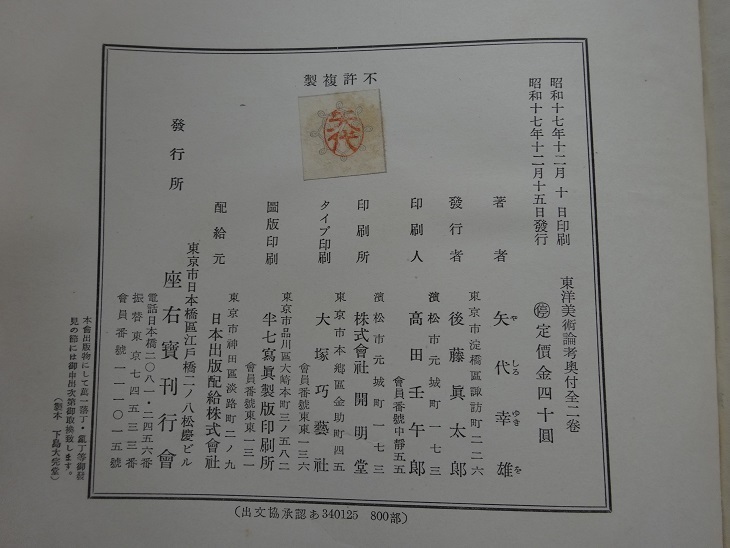 不許複製
昭和十七年十二月 十 日印刷
昭和十七年十二月十五日發行
東洋美術論考奥付全二卷
㊡ 定價金四十圓
著者 矢代幸雄
や しろ ゆき を
東京市淀橋區諏訪町二二六
發行者 後藤眞太郎
濱松市元城町一七三
印刷人 高田壬午郎
會員番號中靜五五
濱松市元城町一七三
印刷所 株式會社開明堂
東京市本郷區金助町四五
タイプ印刷 大塚巧藝社
會員番號東東一三六
東京市品川區大崎本町三ノ五八二
圖版印刷 半七寫眞製版印刷所
會員番號東東一三一
東京市神田區淡路町二ノ九
配給元 日本出版配給株式會社
東京市日本橋區江戸橋二ノ八松慶ビル
發行所 座右寶刊行會
電話日本橋二〇八一・二四五六番
振替東京七四五三三番
會員番號一一一〇一五號
矢代
本會出版物にして萬一落丁・亂丁等御發
見の節には御申出次第御取換致します。
(製本 下島大完堂)
(出文協承認あ340125 800部)